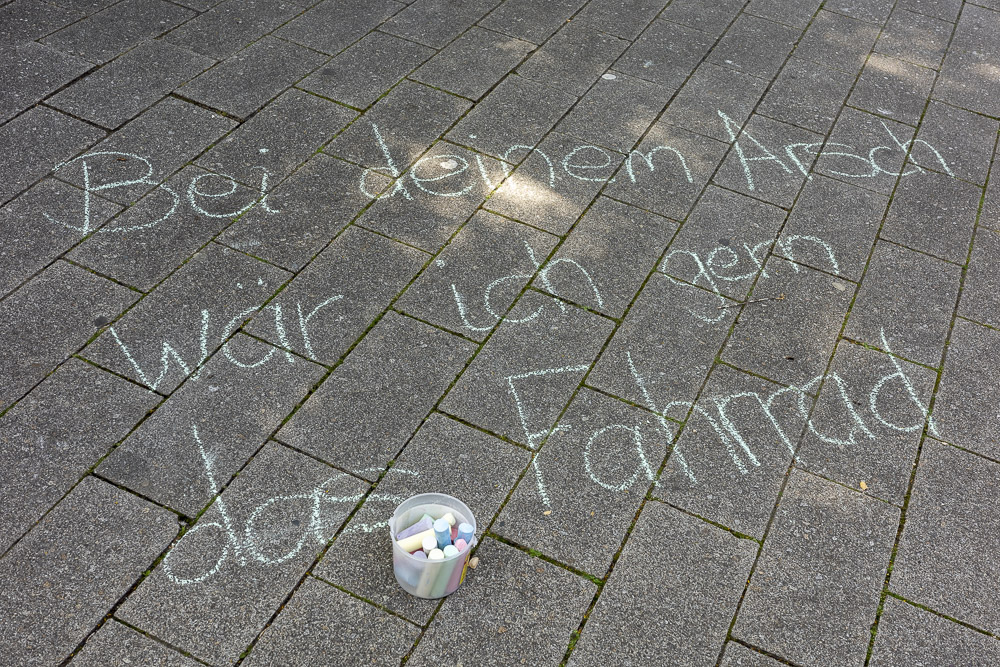 Bei deinem Arsch
wär ich gern
das Fahrrad